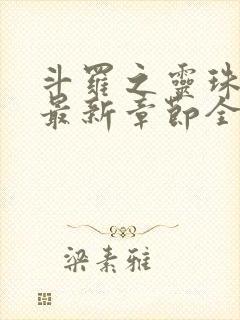 斗羅之靈珠
最新章節全
梁素雅